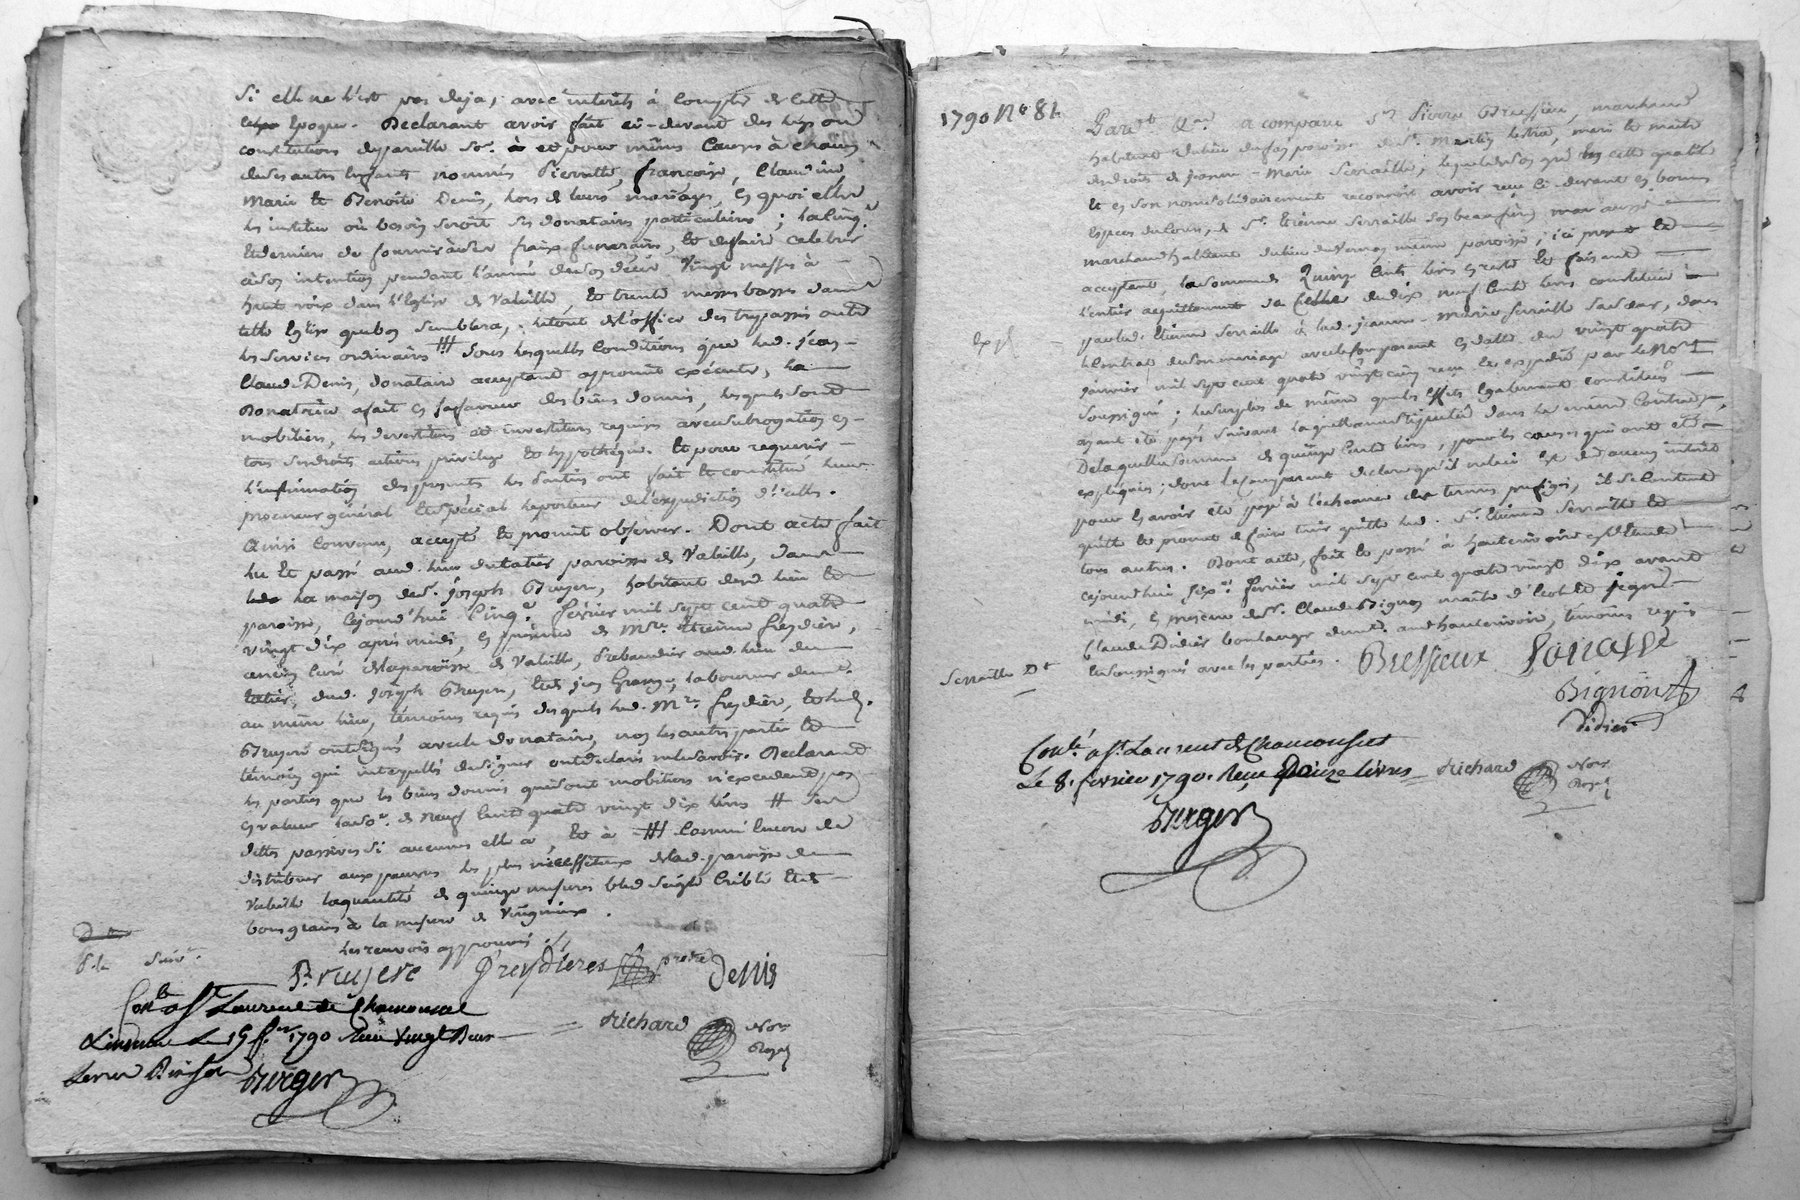 Si elle ne l'est pas deja, avec interets à compter de cette
Epoque. Declarant avoir fait ci-devant des legs ou
constitutions de pareille so.e et pour mêmes causes à chacun
de ses autres Enfants nommés Pierrette, françoise, Claudine,
Marie et Benoite Denis, lors de leurs mariages, En quoi elle
les institue où besoin seroit ses donataires particuliers ;
et dernier de fournir à ses fraix funeraires, et de faire celebrer
à son intention pendant l'année de son décès Vingt messes à
haute voix dans l'Eglise de Valeille, et trente messes basses dans
telle Eglise que bon semblera, le tout de l'office des trepassés outre
les services ordinaires ╫ sous lesquelles Conditions que led. jean-
Claude Denis, donataire acceptant a promit exécuter, la
Donatrice a fait en sa faveur des biens donnés, lesquels sont
mobiliers, les devestitures et investitures requises avec subrogation en
tous ses droits actions privilege et hypothéque. Et pour requerir
l'insinuation des presentes les parties ont fait et constitué leur
procureur général et spécial le porteur de l'expedition d'icelles.
Ainsi convenu, accepté et promit observer. Dont acte fait
lu et passé aud. lieu du tatier paroisse de Valeille, dans
la maison de Sr. joseph Bruyere, habitant dud. lieu et
paroisse, Cejourd'hui Cinq.e fevrier mil sept cent quatre
vingt dix après midi, En présence de Mre. Etienne freydière,
ancien Curé de la paroisse de Valeille, Prebandier aud. lieu du
tatier, dud. joseph Bruyere, et de jean Grange, laboureur demt.
au même lieu, témoins requis desquels led. Mre. freydière, et led.
Bruyere ont signé avec le donataire, non les autres parties et
témoin qui interpellés de signer ont declaré ne le savoir. Declarant
les parties que les biens donnés qui sont mobiliers n'excedent pas
en valeur la so.e de neuf cent quatre vingt dix livres
dettes passives si aucunes elle a, et à ╫ l'année encore de
distribuer aux pauvres les plus nécessiteux de lad. paroisse de
Valeille la quantité de quinze mesures bled seigle criblé et de
bons grains à la mesure de
les renvois approuvés ./.
Bruyere freydieres pretre Denis
Con.lé a St. Laurent de Chamousset
le 15 f.er 1790 Reçu Vingt Deux
Berger
Richard Not.re Royal
1790 N° 81
Pardt. Nre. a comparu Sr. Pierre Bressieu, marchand
habitant du lieu de paroisse de St. Martin lestra, mari et maitre
des droits de jeanne-Marie Serraille ; lequel de son gré En cette qualité
Et en son nom solidairement reconnoit avoir reçu ci-devant en bonnes
Especes de Cours, de Sr. Etienne Serraille son beaufrere mar. aussi
marchand habitant du lieu du Vernay même paroisse ; ici present et
acceptant, la somme de Quinze Cents livres En reste et faisant
l'entier acquittement de celle de dix neuf cents livres constituée
par led. Etienne Serraille à lad. jeanne-Marie Serraille sa soeur, dans
le Contrat de son mariage avec le Comparant En datte du vingt quatre
janvier mil sept cent quatre vingt cinq reçu et expedié par le Nore.
Soussigné ; le surplus de même que les effets Egalement constitués
ayant été payés suivant la quittance stipulée dans le même Contrat,
De laquelle somme de quinze Cents livres, pour les causes qui ont été
expliqués ; dont le comparant declare qu'il ne lui Est dû aucun interêt
pour l'avoir été payé à l'écheance des termes prefigés, il se Contente
quitte et promet de faire tenir quitte led. Sr. Etienne Serraille et
tous autres. Dont acte, fait et passé à hauterivoire Etude
cejourd'hui six.e fevrier mil sept cent quatre vingt dix avant
midi, En presence de Sr. Claude Bignon maitre d'Ecole et
Claude Didier boulanger demt. aud. hauterivoire, témoins requis
et soussignés avec les parties.
Serraille Dt
Bressieux
Bignon
Didier
Con.lé a St. Laurent de Chamousset
Le 8. fevrier 1790. Reçu Douze livres
Berger
Richard Not.re Royal